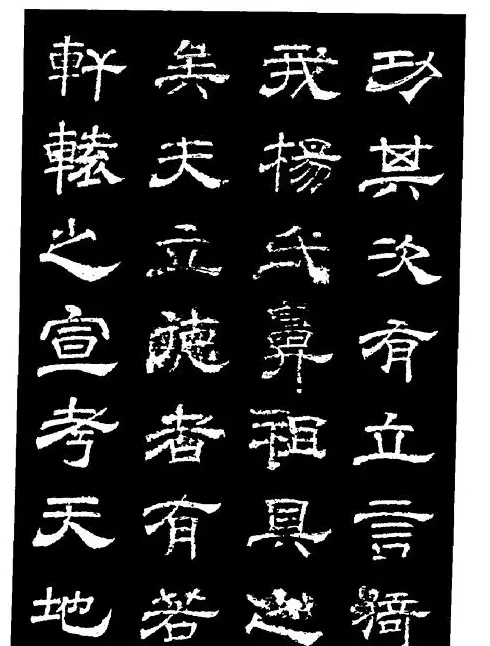 功其次有立言猗
我楊氏鼻祖具之
矣夫立德者有若
軒轅之宣考天地